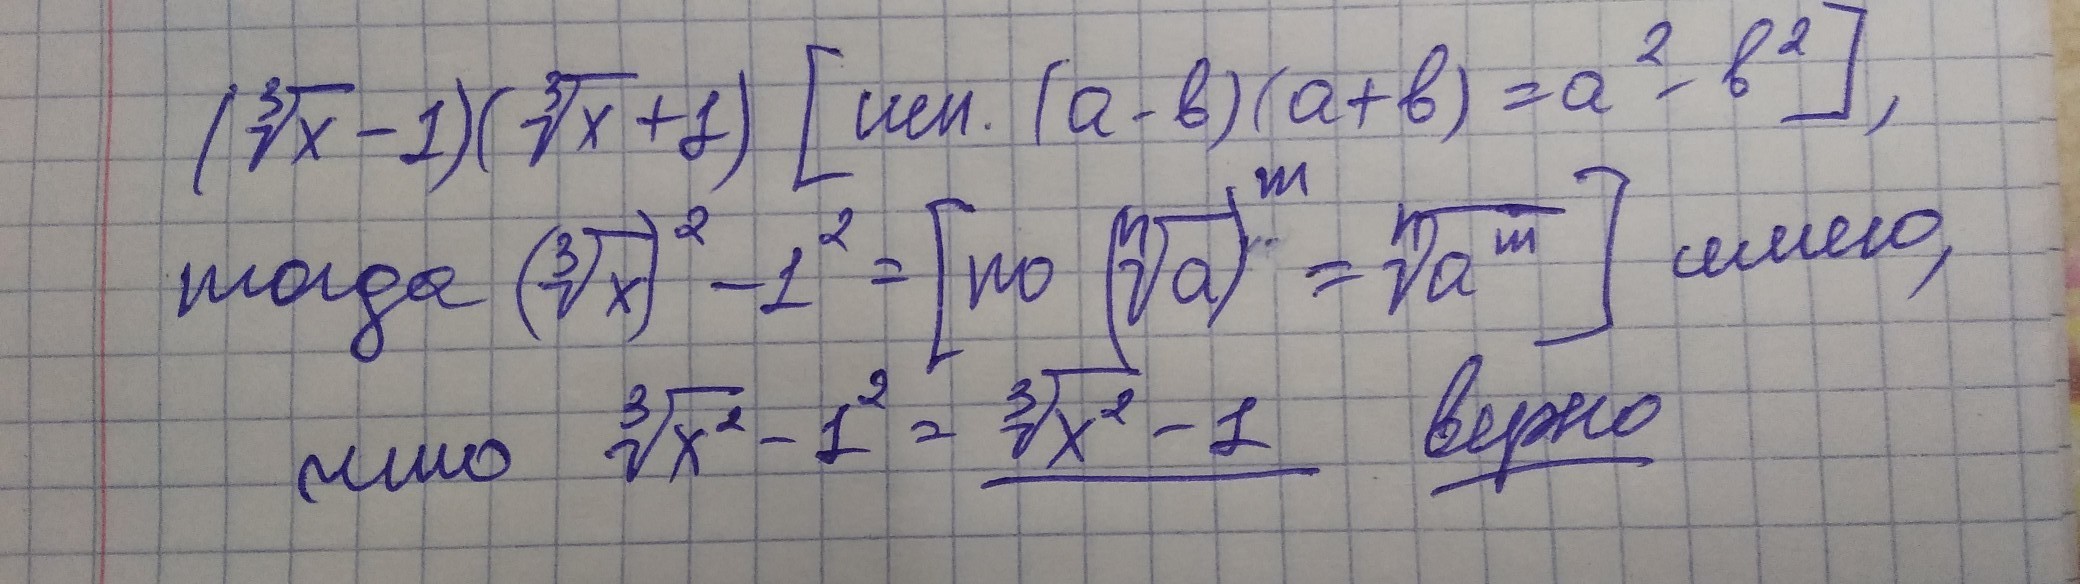 (∛x - 1)(∛x + 1) [исп. (a - в)(a + в) = a² - в²],
тогда (∛x)² - 1² = [по (ⁿ√a)ᵐ = ⁿ√aᵐ] имею,
что ∛x² - 1² = ∛x² - 1 верно